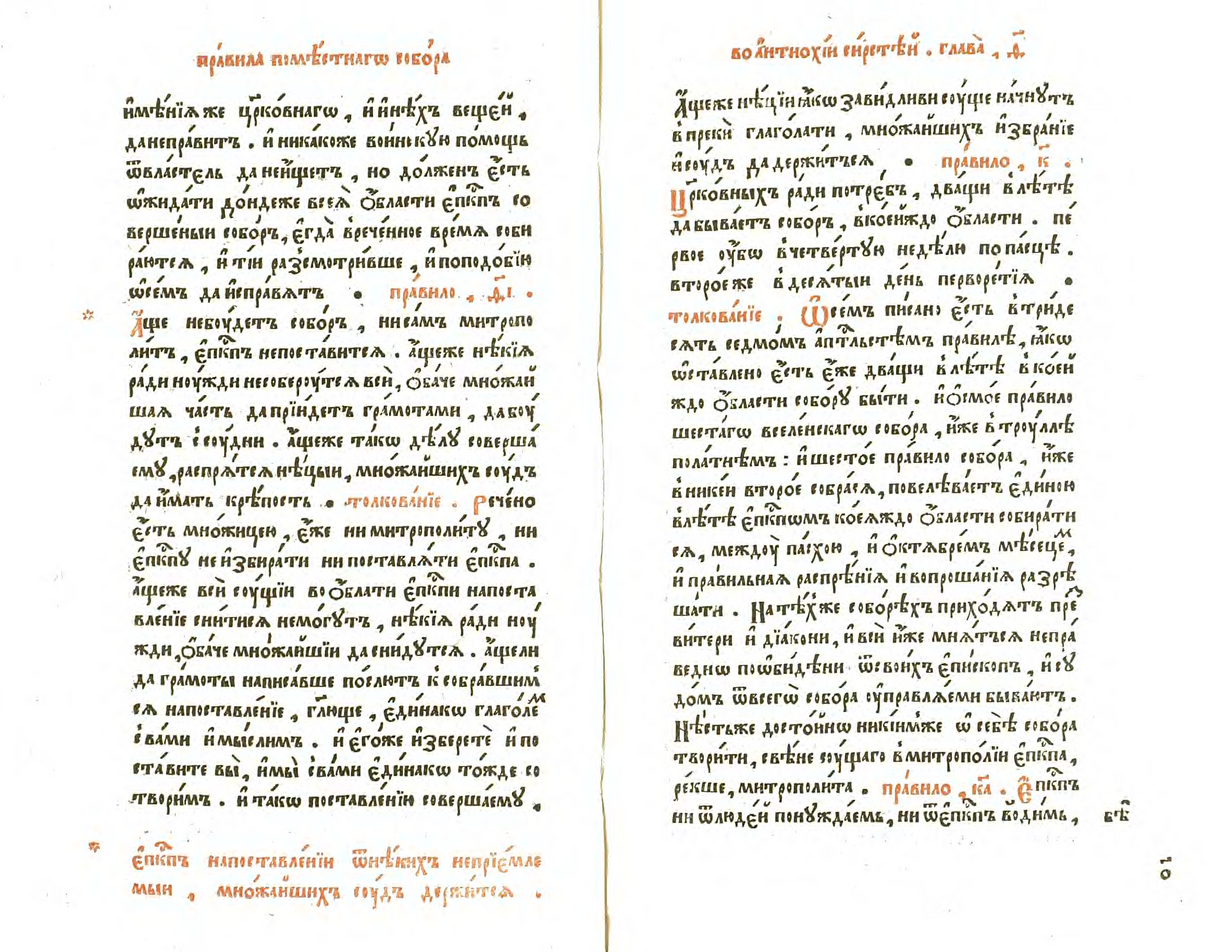 пра́вила помѣ́стнагѡ собо́ра
и҆мѣ́нїѧ же цр҃ко́внагѡ , и҆ и҆нѣ́хъ веще́й ,
да неправитъ . и҆ никакоже во́ин̾скꙋю по́мощь
ѿ властель да не и҆́щетъ , но до́лженъ є҆́сть
ѡ҆жида́ти до́ндеже всеѧ̀ ѻ҆́бласти є҆пк҃пъ со
верше́ныи собо́ръ, є҆гда̀ в̾рече́нное вре́мѧ соби
ра́ютсѧ , и҆ ті́и раз̾смотри́вше , и҆ по подо́бїю
ѡ҆ всемъ да и҆спра́вѧтъ • пра́вило , д҃і .
А҆́ще небꙋ́детъ собо́ръ , ни са́мъ митропо
ли́тъ , є҆пк҃пъ непоста́витсѧ . а҆́щеже нѣ́кїѧ
ра́ди нꙋ́жди несоберꙋ́тсѧ всѝ, ѻ҆ба́че мно́жай
шаѧ ча́сть да прїи́детъ гра́мотами , да бꙋ́
дꙋтъ с̾сꙋ́дни . а҆́щеже та́кѡ дѣ́лꙋ соверша́
емꙋ̀ , распрѧ́тсѧ нѣ́цыи, мно́жайшихъ сꙋ́дъ
да и҆́мать крѣ́пость • толкова́нїе . Рече́но
є҆́сть мно́жицею , є҆́же ни митрополи́тꙋ , ни
є҆пк҃пꙋ не и҆збира́ти ни поставлѧ́ти є҆пк҃па .
а҆́щеже всѝ сꙋ́щїи во ѻ҆́бласти є҆пк҃пи на поста
вле́нїе сни́тисѧ немо́гꙋтъ , нѣ́кїѧ ра́ди нꙋ́
жди, ѻ҆ба́че мно́жайшїи да сни́дꙋтсѧ . а҆́щели
да гра́моты написа́вше по́слютъ к̾собра́вшим
сѧ на поставле́нїе , гл҃юще , є҆ди́накѡ глаго́лем
с̾ва́ми и҆ мы́слимъ . и҆ є҆го́же и҆зберетѐ и҆ по
ста́вите вы̀, и҆ мы̀ с̾ва́ми є҆ди́накѡ то́жде со
твори́мъ . и҆ та́кѡ поставле́нїю соверша́емꙋ ,
є҆пк҃пъ на поставле́нїи ѿ нѣ́кихъ непрїе́мле
мыи , мно́жайшихъ сꙋ́дъ держи́тсѧ .
во а҆нтиохі́и си́рстѣй . глава̀ , д҃
А҆́щеже нѣ́цїи ꙗ҆́кѡ зави́дливи сꙋ́ще на́чнꙋтъ
в̾прекѝ глаго́лати , мно́жайшихъ и҆збра́нїе
и҆ сꙋ́дъ да держи́тсѧ • пра́вило , к҃ .
Цр҃ко́вныхъ ради потре́бъ , два́щи в̾лѣ́тѣ
да быва́етъ собо́ръ , в̾кое́йждо ѻ҆́бласти . пе́
рвое ᲂу҆́бѡ в̾четве́ртꙋю недѣ́лю по па́сцѣ .
второ́еже в̾десѧ́тыи де́нь перворе́тїѧ •
толкова́нїе . Ѡ҆ се́мъ пи́сано є҆́сть в̾три́де
сѧть седмо́мъ а҆пт҃льстѣмъ пра́вилѣ, ꙗ҆́кѡ
ѡ҆ста́влено є҆́сть є҆́же два́щи в̾лѣ́тѣ в̾ко́ей
ждо ѻ҆́бласти собо́рꙋ бы́ти . и҆ ѻ҆смо́е пра́вило
шеста́гѡ вселе́нскагѡ собо́ра , и҆́же в̾трꙋ́ллѣ
пола́тнѣмъ : и҆ шесто́е пра́вило собо́ра , и҆́же
в̾нике́и второ́е собра́сѧ, повелѣва́етъ є҆ди́ною
в̾лѣ́тѣ є҆пк҃пѡмъ коеѧ́ждо ѻ҆́бласти собира́ти
сѧ , междꙋ̀ па́схою , и҆ ѻ҆ктѧ́бремъ мѣ́сецем ,
и҆ пра́вильнаѧ распрѣ́нїѧ и҆ вопроша́нїѧ разрѣ
ша́ти . На тѣ́хже собо́рѣхъ прихо́дѧтъ пре
ви́тери и҆ дїа́кони, и҆ всѝ и҆́же мнѧ́тсѧ непра́
веднѡ поѡ҆би́дѣни ѿ свои́хъ є҆пи́скопъ , и҆ сꙋ
до́мъ ѿ всегѡ̀ собо́ра ᲂу҆правлѧ́еми быва́ютъ .
Нѣ́стьже досто́йнѡ ники́мже ѡ҆ себѣ̀ собо́ра
твори́ти, свѣ́не сꙋ́щаго в̾митропо́лїи є҆пк҃па,
ре́кше, митрополи́та . пра́вило , к҃а . Є҆пк҃пъ
ни ѿ люде́й понꙋжда́емь, ни ѿ є҆пк҃пъ во́димь ,
бѣ